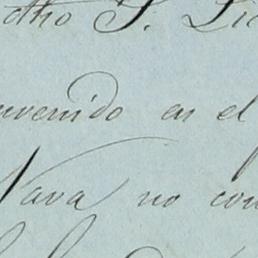 dho S. Lic
nvenido en el
Nava no con